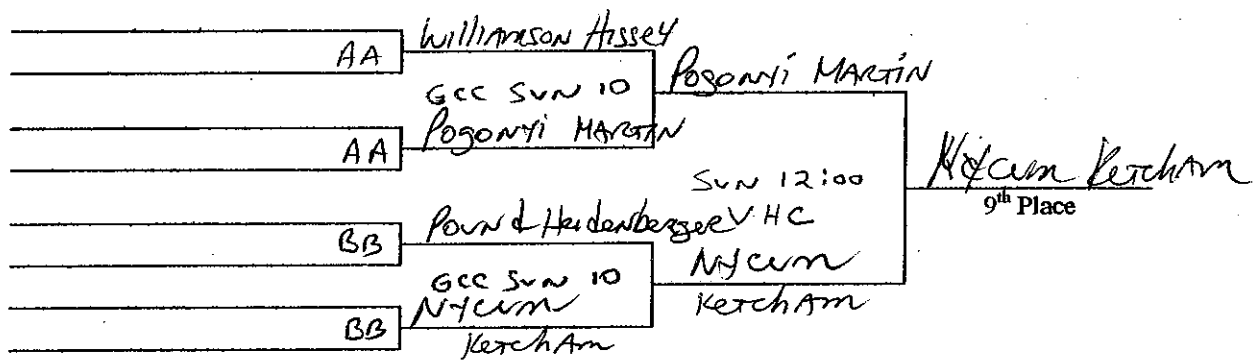 Williamson Hissey
AA
GCC SUN 10
Pogonyi MARTIN
Pogonyi MARTIN
AA
SUN 12:00
Nycum Ketcham
9th Place
Pound Heidenberger VHC
BB
GCC SUN 10
Nycum
Ketcham
Nycum
Ketcham
BB